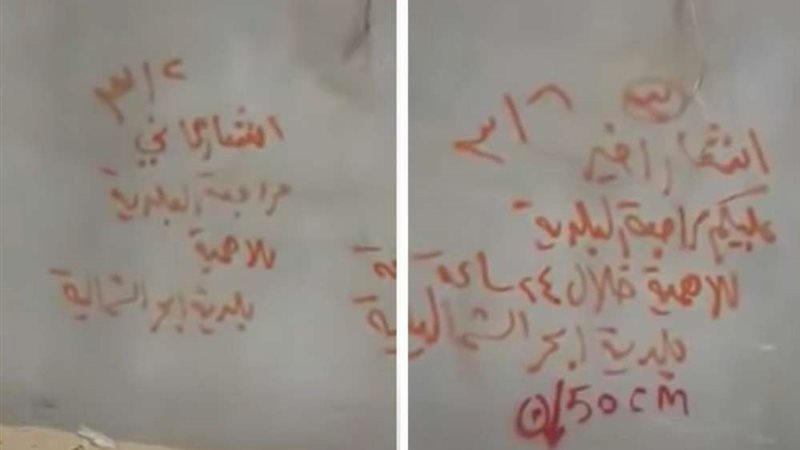 ٣/٢
اشعار ثاني
مراجعة البلدية
للاهمية
بلدية ابحر الشمالية
٣/٦
اشعار اخير
عليكم مراجعة البلدية
للاهمية خلال ٢٤ ساعة
بلدية ابحر الشمالية
50 cm